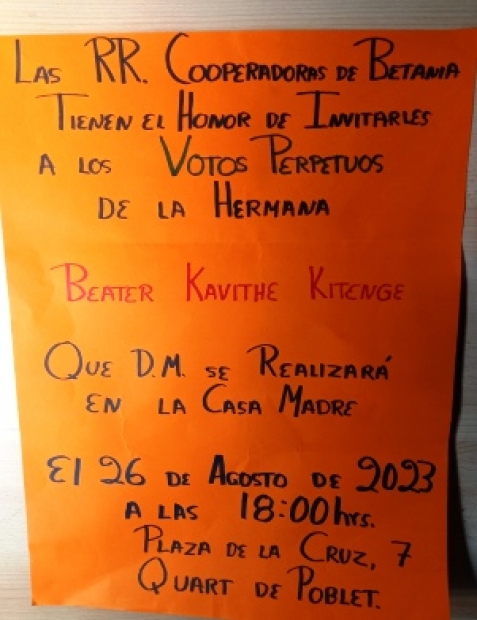 Las RR. Cooperadoras de Betania
Tienen el Honor de Invitarles
a los Votos Perpetuos
de la Hermana
Beater Kavithe Kitenge
Que D.M. se Realizará
en la Casa Madre
El 26 de Agosto de 2023
a las 18:00hrs.
Plaza de la Cruz, 7
Quart de Poblet.